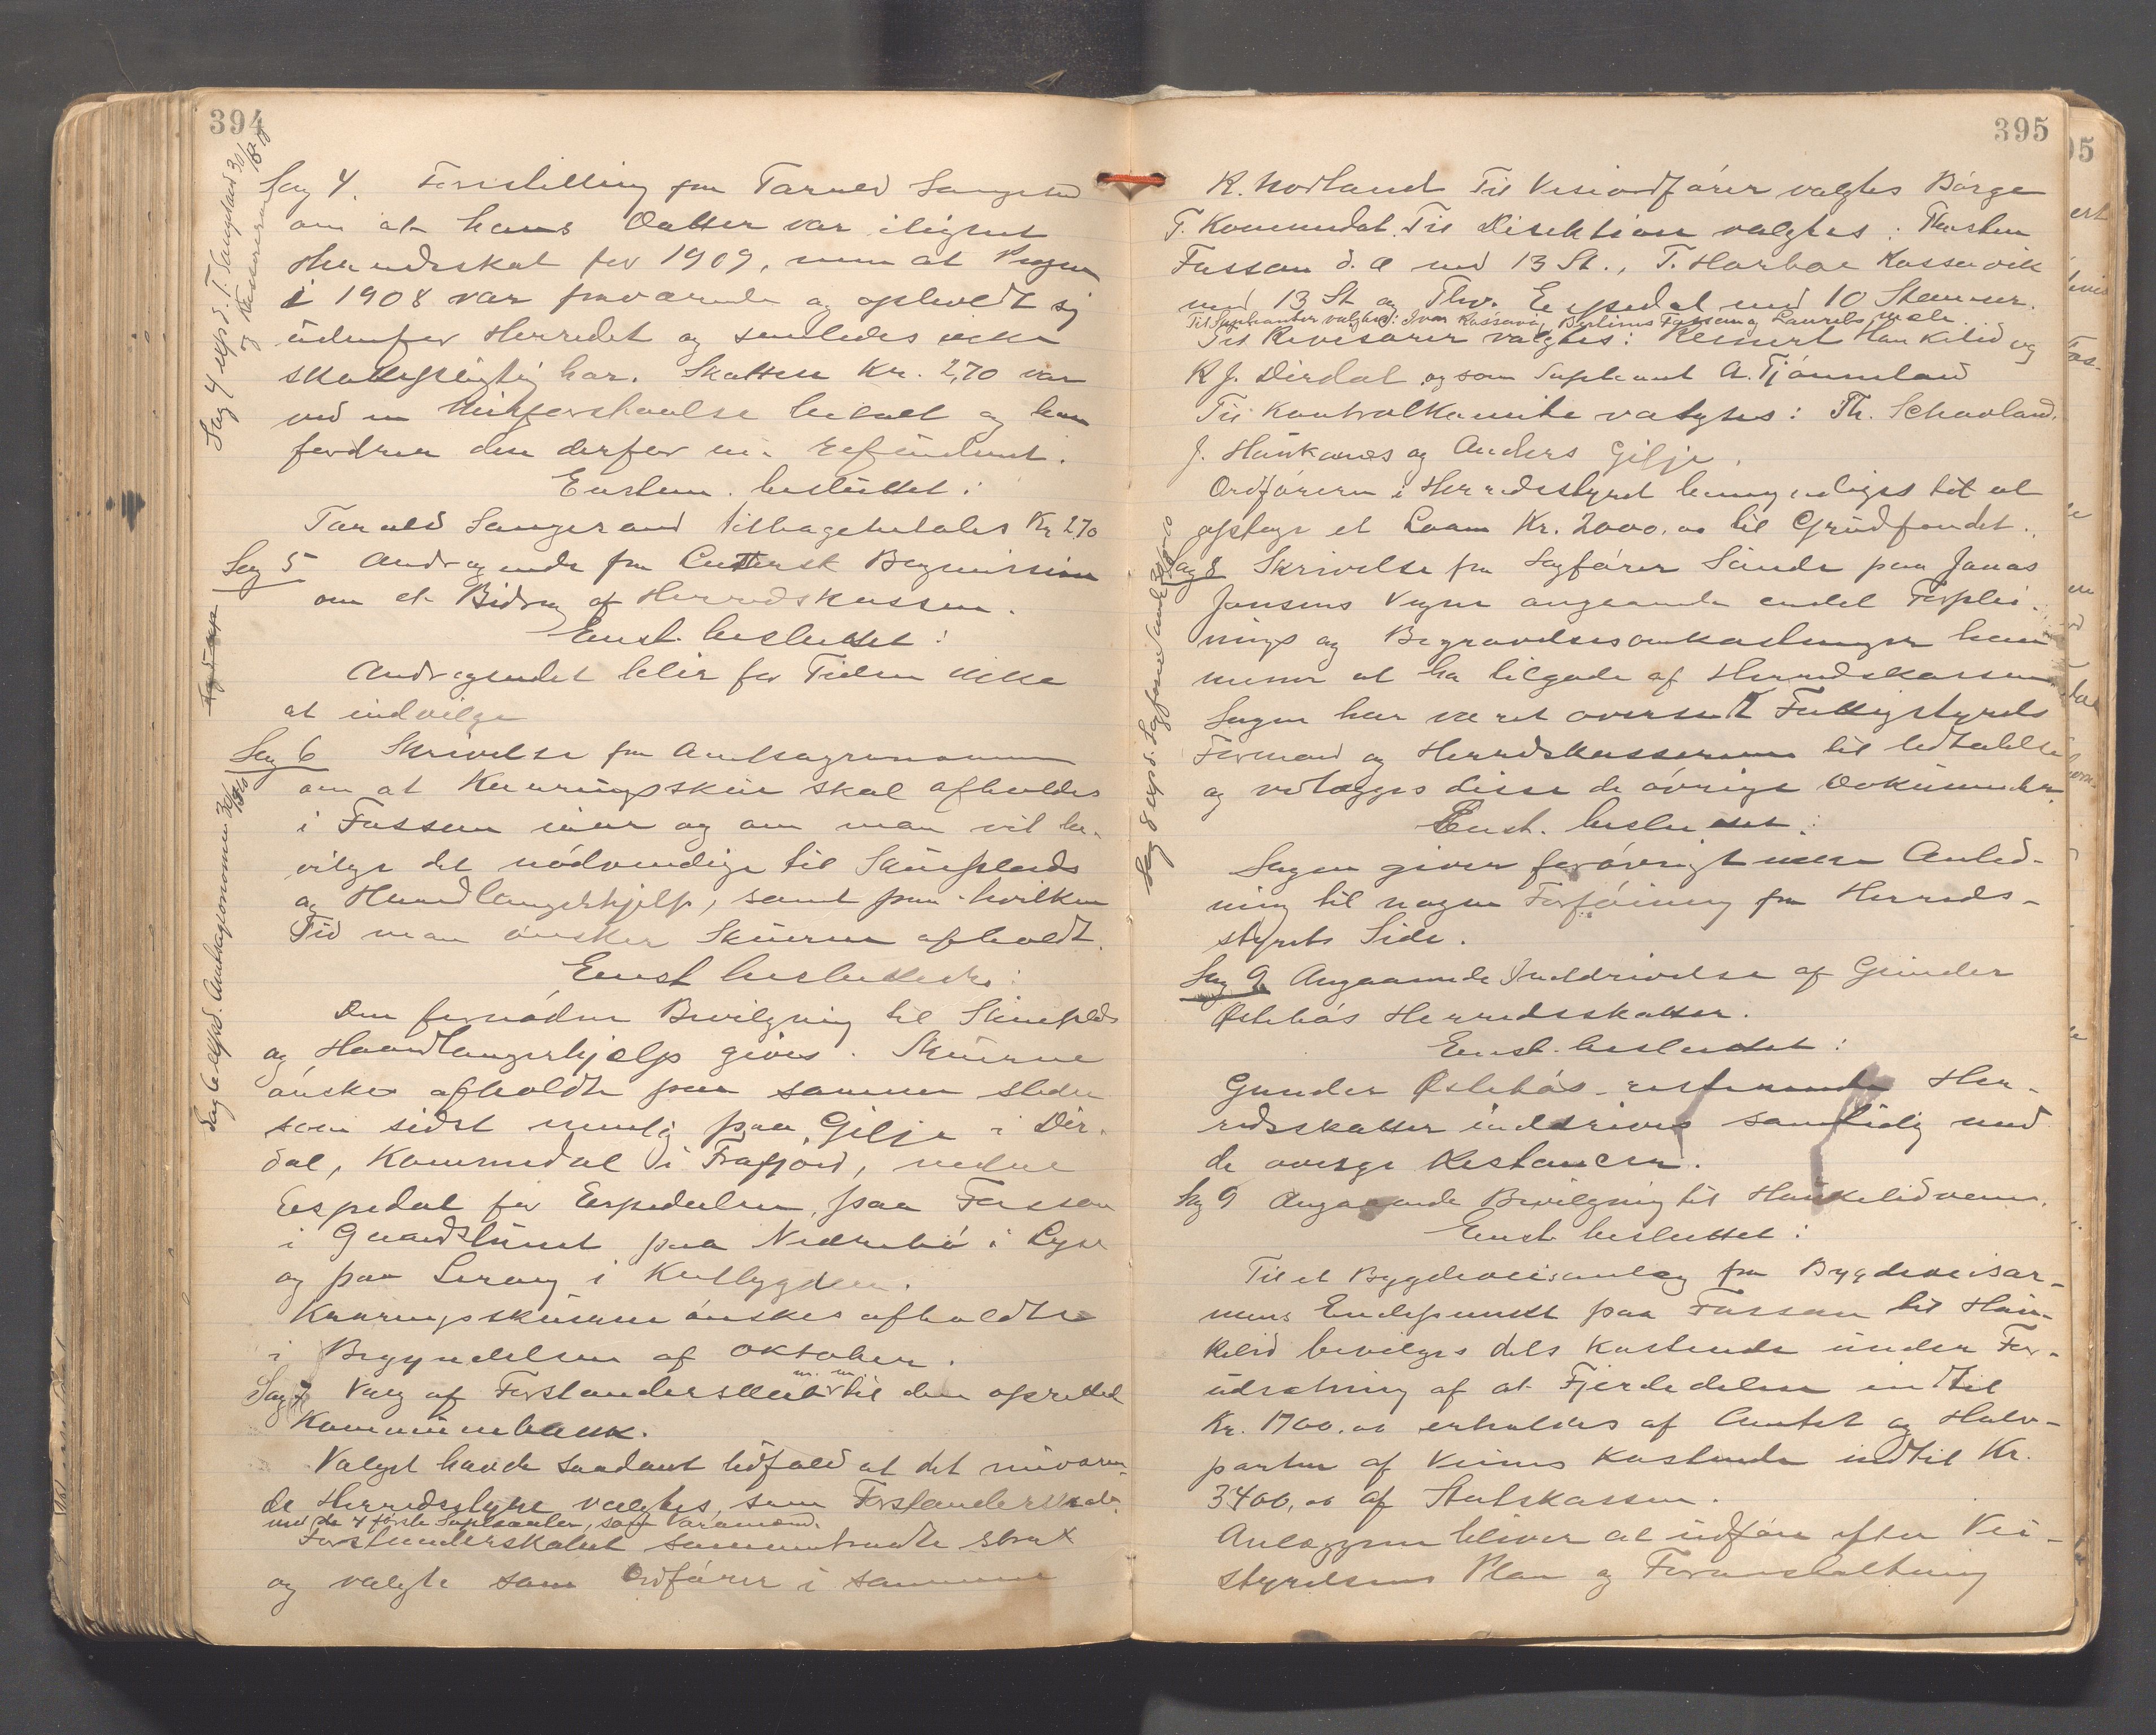 394
Sag 4 exp d. T. Sangstad 30/8 10
og Kassereren
Sag 4. Forestilling fra Tarald Sangesand
om at hans Datter var ilignet
Herredsskat for 1909, men at Pigen
i 1908 var fraværende og opholdt sig
udenfor Herredet og saaledes ikke
skattepligtig her. Skatten Kr. 2,70 var
ved en Misforstaaelse betalt og han
fordrer den derfor nu refunderet.
Enstem. besluttet:
Tarald Sangesand tilbagebetales Kr 2,70
Sag 5 Andragende fra Centersk
om et Bidrag af Herredskassen.
Enst. besluttet:
Andragendet blir for Tiden ikke
at indvilge
Sag 6 expd. Amtsagronomen 30/8 10
Sag 6 Skrivelse fra Amtsagronomen
om at Kaaringsskue skal afholdes
i Fossan iaar og om man vil be-
vilge det nødvendige til Skueplads
og Haandlangerhjelp, samt paa hvilken
Tid man ønsker Skuerne afholdt.
Enst besluttedes:
Den fornødne Bevilgning til Skueplads
og Haandlangerhjælp gives. Skuerne
ønskes afholdte paa samme steder
som sidst nemlig paa Gilje i Dir-
dal, Kommedal i Frafjord, nedre
Espedal for Espedalen, paa Fossan
i Gaardstunet paa Nedrebø i Lyse
og paa Lerang i Kutbygden.
Kaaringsskuerne ønskes afholdte
i Begyndelsen af Oktober.
Sag 7 Valg af Forstanderskab m. m. til den oprettede
Kommunebank.
Valget havde saadant Udfald at det nuværen-
de Herredsstyre valgtes som Forstanderskab
med de 4 første Suppleanter, som Varamænd.
Forstanderskabet sammentraadte strax
og valgte som Ordfører i samme
395
K. Nordland Til Viseordfører valgtes Børge
T. Kommedal. Til Direktion valgtes: Thorsten
Fossan d. æ med 13 St., T. Harboe Kossevik
med 13 St og Thv. Espedal med 10 Stemmer.
Til Suppleanter valgtes: Ivar Kossavig, Bertinus Fossan og Laurits Mele
Til Revisorer valgtes: Reinert Haukelid og
K J. Dirdal og som Supleant A. Tjønneland
Til Kontrolkomite valgtes: Th. Schavland,
J. Haukanes og Anders Gilje.
Ordføreren i Herredsstyret bemyndiges til at
optage et Laan Kr. 2000.00 til Grundfondet.
Sag 8 expd. Sagfører Sande 30/8 10
Sag 8 Skrivelse fra Sagfører Sande paa Jonas
Jonsens Vegne angaaende endel Forplei-
nings og Begravelsesomkostninger han
mener at ha tilgode af Herredskassen.
Sagen har været oversendt Fattigstyrets
Formand og Herredskassereren til Udtalelse
og vedlægges disse de øvrige Dokumenter.
Enst. besluttet:
Sagen giver forøvrigt ikke Anled-
ning til nogen Forføining fra Herreds-
styrets Side.
Sag 9 Angaaende Inddrivelse af Gunder
Østebøs Herredsskatter.
Enst. besluttet:
Gunder Østebøs resterende Her-
redsskatter inddrives samtidig med
de øvrige Restancer.
Sag 9 Angaaende Bevilgning til Haukelidveien.
Enst. besluttet:
Til et Bygdeveisanlæg fra Bygdeveisar-
mens Endepunkt paa Fossan til Hau-
kelid bevilges dets Kostende under For-
udsætning af at Fjerdedelen indtil
Kr. 1700.00 erholdes af Amtet og Halv-
parten af Veiens Kostende indtil Kr.
3400,00 af Statskassen.
Anlægget bliver at udføre efter Vei-
styrelsens Plan og Foranstaltning